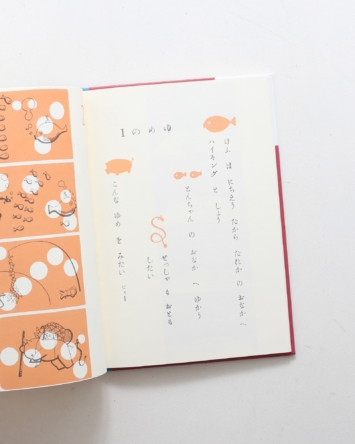 ゆめの1
けふ は にちえう だから だれか の おなか へ
ハイキング と しよう
とんちゃん の おなか へ ゆかう
せっしゃ も おとも
したい
こんな ゆめ を みたい